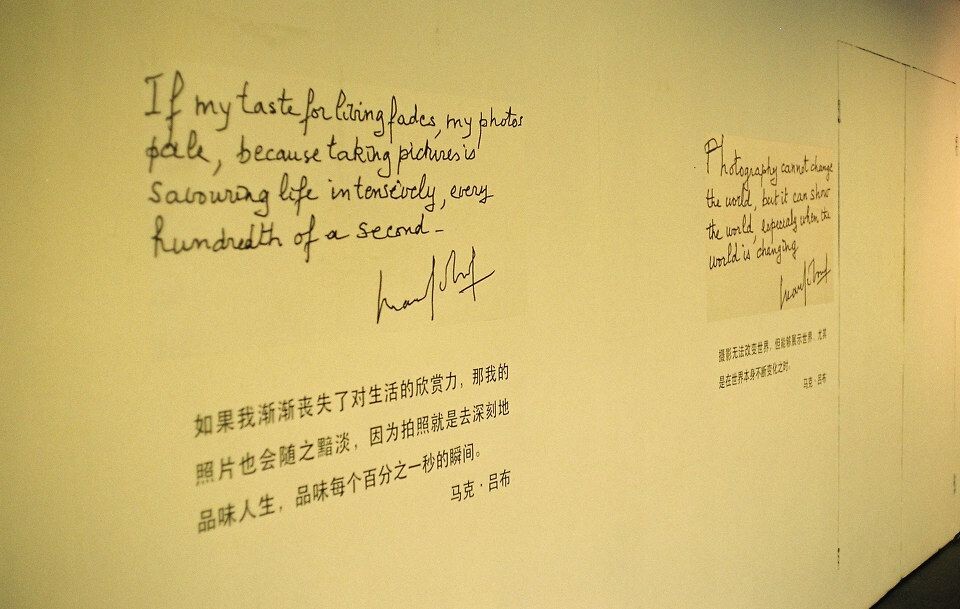 If my taste for living fades, my photos
pale, because taking pictures is
savouring life intensively, every
hundredth of a second.
如果我渐渐丧失了对生活的欣赏力，那我的
照片也会随之黯淡，因为拍照就是去深刻地
品味人生，品味每个百分之一秒的瞬间。
马克·吕布
Photography cannot change
the world, but it can show
the world, especialy when the
world is changing
摄影无法改变世界，但能够展示世界，尤其
是在世界本身不断变化之时。
马克·吕布